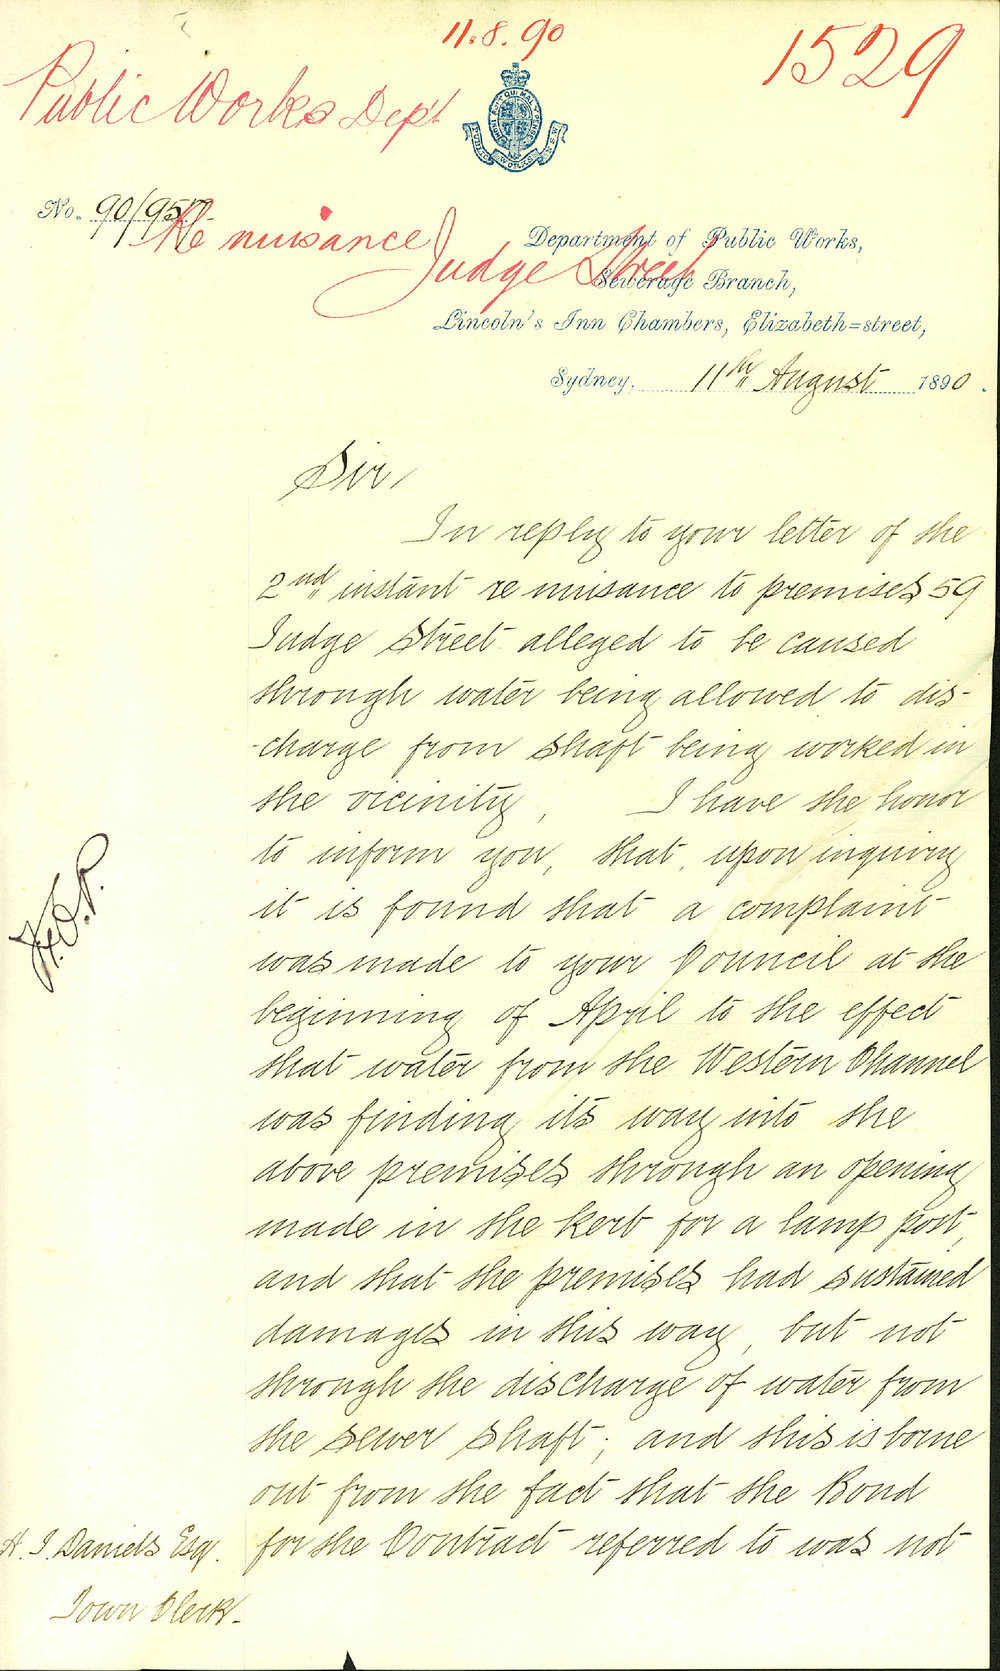 11.8.90
1529
Public Works Dept
PUBLIC WORKS N.S.W.
No. 90/957
Re nuisance
Judge Street
Department of Public Works,
Sewerage Branch,
Lincoln's Inn Chambers, Elizabeth=street,
Sydney, 11th August 1890.
Sir,
In reply to your letter of the
2nd instant re nuisance to premises 59
Judge Street alleged to be caused
through water being allowed to dis-
-charge from shaft being worked in
the vicinity, I have the honor
to inform you, that, upon inquiry
it is found that a complaint
was made to your Council at the
beginning of April to the effect
that water from the Western Channel
was finding its way into the
above premises through an opening
made in the kerb for a lamp post,
and that the premises had sustained
damages in this way, but not
through the discharge of water from
the sewer shaft; and this is borne
out from the fact that the Bond
for the Contract referred to was not
H. J. Daniels Esq.
Town Clerk.